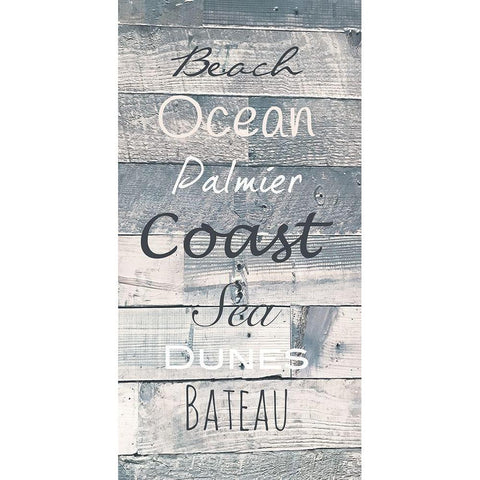 Beach
Ocean
Palmier
Coast
Sea
DUNES
BATEAU